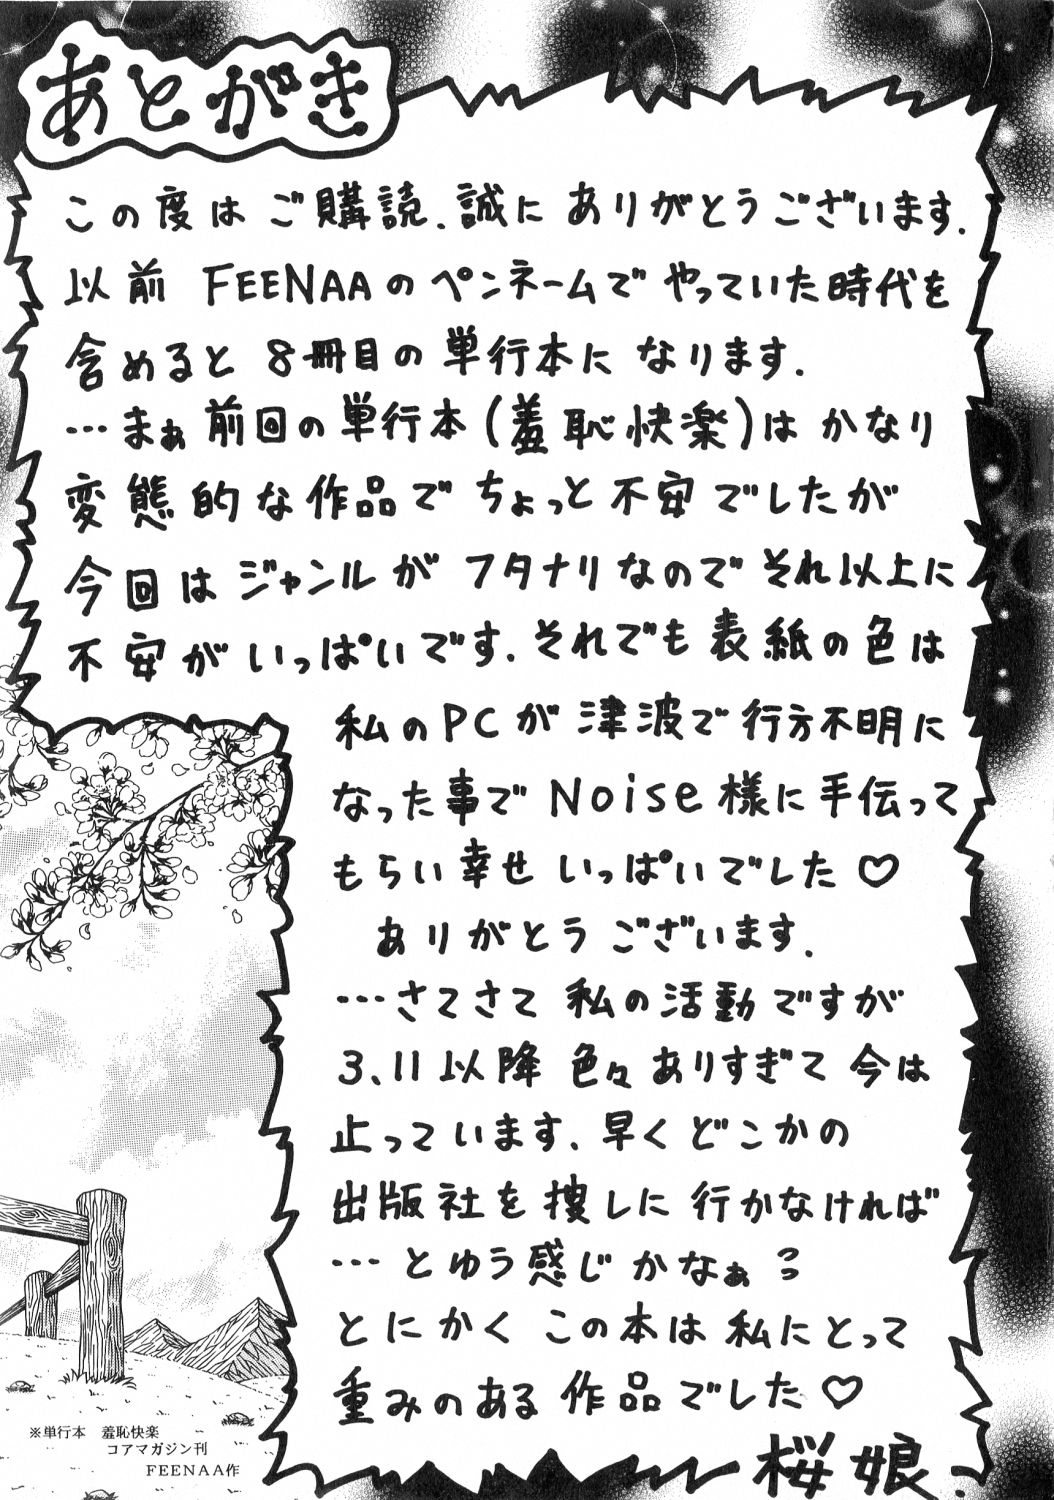 あとがき
この度は ご購読、誠に ありがとうございます.
以前 FEENAAの ペンネームで やっていた時代を
含めると 8冊目の 単行本に なります.
…まぁ 前回の 単行本(羞恥快楽)は かなり
変態的な作品で ちょっと 不安でしたが
今回は ジャンルが フタナリなので それ以上に
不安が いっぱいです. それでも 表紙の 色は
私の PCが 津波で 行方不明に
なった事で Noise様に 手伝って
もらい 幸せ いっぱいでした♡
ありがとう ございます.
…さてさて 私の 活動ですが
3、11以降 色々 ありすぎて 今は
止っています. 早く どこかの
出版社を 捜しに 行かなければ
…とゆう 感じ かなぁ
とにかく この本は 私にとって
重みのある 作品でした♡
桜 娘.
※単行本 羞恥快楽
コアマガジン刊
FEENAA作